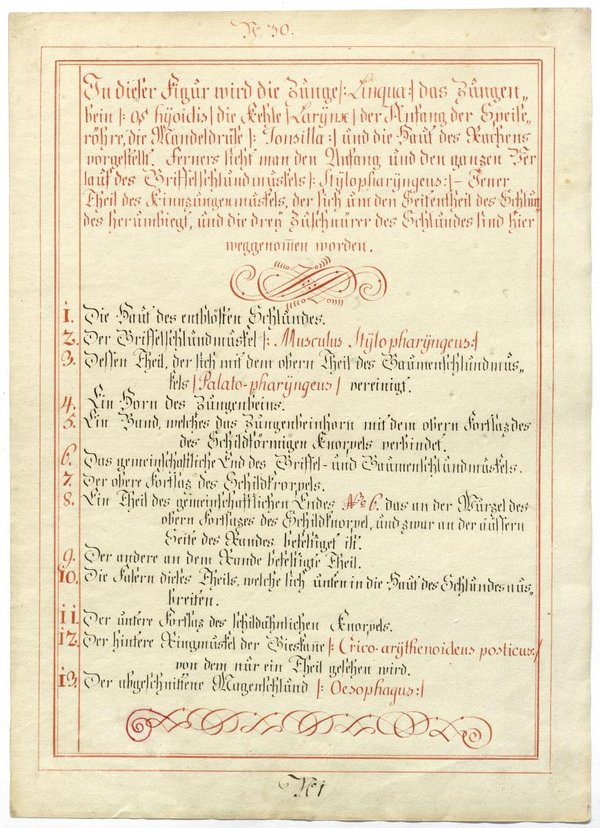 N: 30.
In dieser Figur wird die Zunge |: Lingua :| das Zungen„
bein |: os hÿoidis| die Kehle |Larÿnx| der Anfang der Speise„
röhre, die Mandeldrüse |: Tonsilla :| und die Haut des Rachens
vorgestellt. Ferners sieht man den Anfang, und den ganzen Ver
lauf des Griffelschlundmuskels |: Stÿlopharÿngeus :| – Jener
Theil des Kinnzungenmuskels, der sich um den Seitentheil des Schlun„
des herumbiegt, und die dreÿ Zuschnürer des Schlundes sind hier
weggenom̄en worden.
1. Die Haut des entblösten Schlundes.
2. Der Griffelschlundmuskel |: Musculus Stÿlopharÿngeus :|
3. Dessen Theil, der sich mit dem obern Theil des Gaumenschlundmus„
kels |Palato-pharÿngeus| vereinigt.
4. Ein Horn des Zungenbeins.
5. Ein Band, welches das Zungenbeinhorn mit dem obern Fortsaz des
des Schildförmigen Knorpels verbindet.
6. Das gemeinschaftliche End des Griffel- und Gaumenschlundmuskels.
7. Der obere Fortsaz des Schildknorpels.
8. Ein Theil des gemeinschaftlichen Endes No 6. das an der Wurzel des
obern Fortsazes des Schildknorpel, und zwar an der äussern
Seite des Randes befestiget ist.
9. Der andere an dem Rande befestigte Theil.
10. Die Fasern dieses Theils, welche sich unten in die Haut des Schlundes aus„
breiten.
11. Der untere Fortsaz des schildähnlichen Knorpels.
12. Der hintere Ringmuskel der Gieskan̄e |: Crico-arÿthenoideus posticus :|
von dem nur ein Theil gesehen wird.
13. Der abgeschnittene Magenschlund |: Oesophagus :|
N: 1